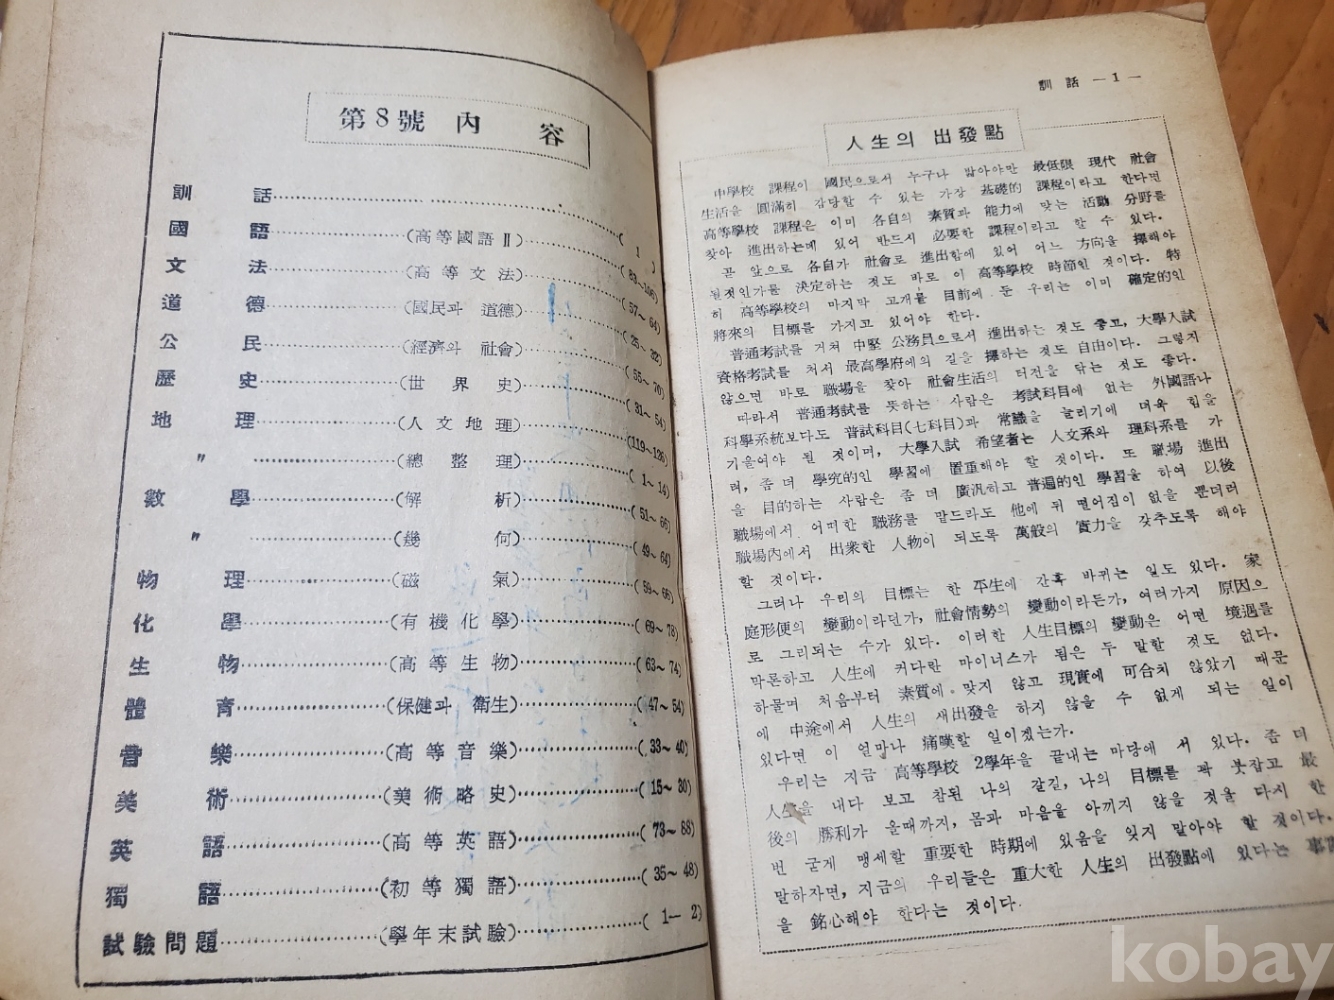 第8號 內 容
訓 話 ( 1 )
國 語 (高等國語Ⅱ) ( 83~106)
文 法 (高等文法) (57~64)
道 德 (國民과 道德) (25~32)
公 民 (經濟와 社會) (55~70)
歷 史 (世界史) (31~54)
地 理 (人文地理) (119~126)
〃 (總整理) ( 1~14)
數 學 (解 析) (51~66)
〃 (幾 何) (49~64)
物 理 (磁 氣) (59~66)
化 學 (有機化學) (69~78)
生 物 (高等生物) (63~74)
體 育 (保健과 衛生) (47~54)
音 樂 (高等音樂) (33~40)
美 術 (美術略史) (15~30)
英 語 (高等英語) (73~88)
獨 語 (初等獨語) (35~48)
試驗問題 (學年末試驗) ( 1— 2)
訓 話 —1—
人生의 出發點
中學校 課程이 國民으로서 누구나 밟아야만 最低限 現代 社會
生活을 圓滿히 감당할 수 있는 가장 基礎的 課程이라고 한다면
高等學校 課程은 이미 各自의 素質과 能力에 맞는 活動 分野를
찾아 進出하는데 있어 반드시 必要한 課程이라고 할 수 있다.
곧 앞으로 各自가 社會로 進出함에 있어 어느 方向을 擇해야
될것인가를 決定하는 것도 바로 이 高等學校 時節인 것이다. 特
히 高等學校의 마지막 고개를 目前에 둔 우리는 이미 確定的인
將來의 目標를 가지고 있어야 한다.
普通考試를 거쳐 中堅 公務員으로서 進出하는 것도 좋고, 大學入試
資格考試를 쳐서 最高學府에의 길을 擇하는 것도 自由이다. 그렇지
않으면 바로 職場을 찾아 社會生活의 터전을 닦는 것도 좋다.
따라서 普通考試를 뜻하는 사람은 考試科目에 없는 外國語나
科學系統보다도 普試科目(七科目)과 常識을 늘리기에 더욱 힘을
기울여야 될 것이며, 大學入試 希望者는 人文系와 理科系를 가
려, 좀 더 學究的인 學習에 置重해야 할 것이다. 또 職場 進出
을 目的하는 사람은 좀 더 廣汎하고 普遍的인 學習을 하여 以後
職場에서 어떠한 職務를 맡드라도 他에 뒤 떨어짐이 없을 뿐더러
職場內에서 出衆한 人物이 되도록 萬般의 實力을 갖추도록 해야
할 것이다.
그러나 우리의 目標는 한 平生에 간혹 바뀌는 일도 있다. 家
庭形便의 變動이라던가, 社會情勢의 變動이라든가, 여러가지 原因으
로 그리되는 수가 있다. 이러한 人生目標의 變動은 어떤 境遇를
막론하고 人生에 커다란 마이너스가 됨은 두 말할 것도 없다.
하물며 처음부터 素質에 맞지 않고 現實에 可合치 않았기 때문
에 中途에서 人生의 새出發을 하지 않을 수 없게 되는 일이
있다면 이 얼마나 痛嘆할 일이겠는가.
우리는 지금 高等學校 2學年을 끝내는 마당에 서 있다. 좀 더
人生을 내다 보고 참된 나의 갈길, 나의 目標를 꽉 붓잡고 最
後의 勝利가 올때까지, 몸과 마음을 아끼지 않을 것을 다시 한
번 굳게 맹세할 重要한 時期에 있음을 잊지 말아야 할 것이다.
말하자면, 지금의 우리들은 重大한 人生의 出發點에 있다는 事實
을 銘心해야 한다는 것이다.
kobay